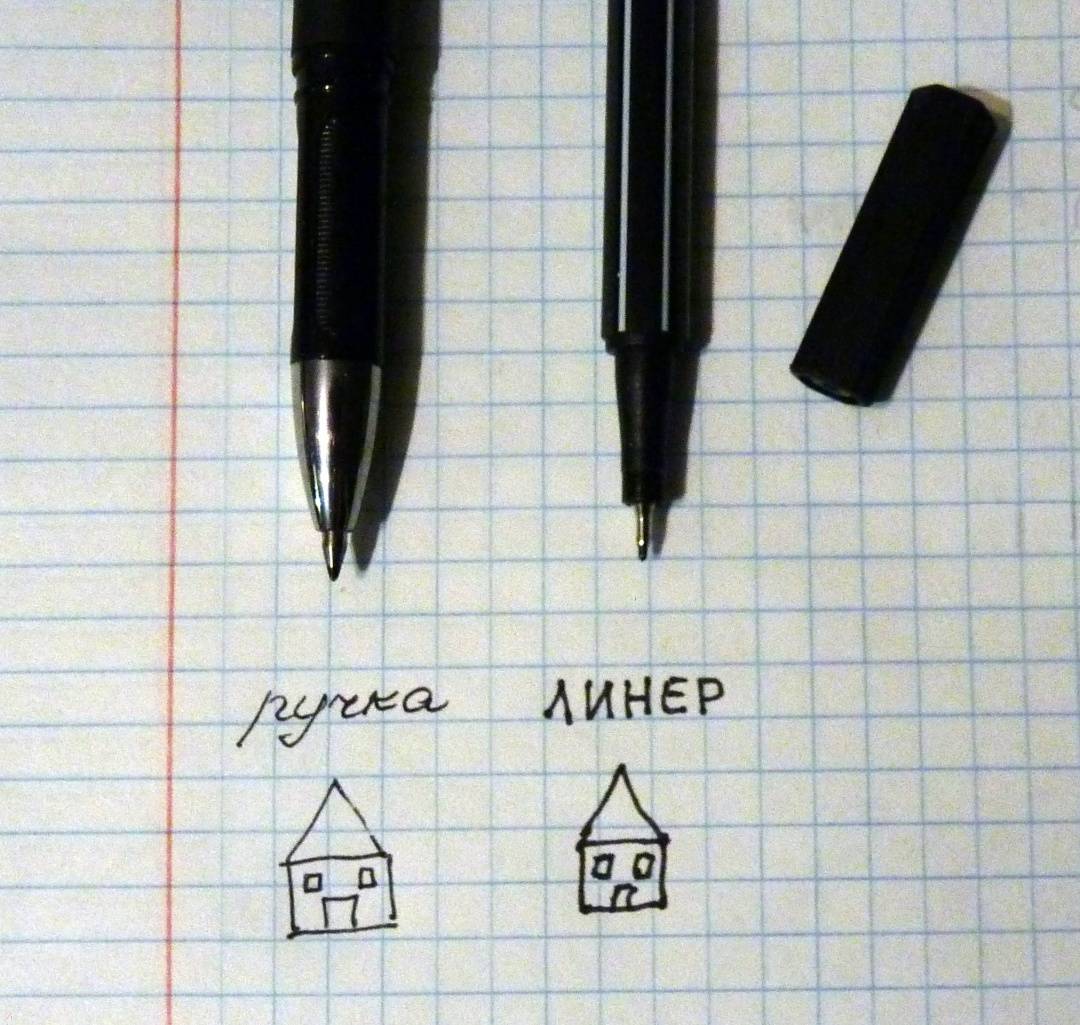 ручка ЛИНЕР